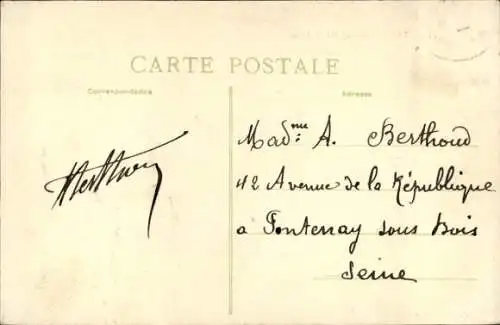 CARTE POSTALE
Correspondance
Adresse
Mad^me A. Berthoud
42 Avenue de la République
a Fontenay sous Bois
Seine